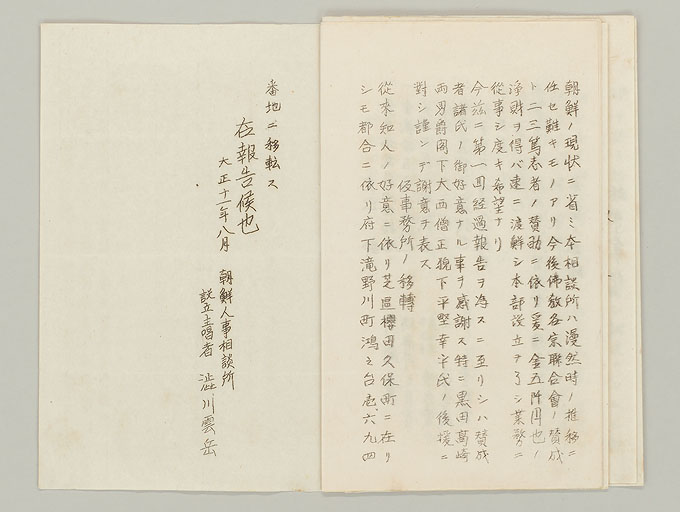 朝鮮ノ現状ニ省ミ本相談所ハ漫然時ノ推移ニ
任セ難キモノアリ今後佛教各宗聯合會ノ賛成
ト二三篤志者ノ賛助ニ依リ爰ニ金五阡円也ノ
浄財ヲ得バ速ニ渡鮮シ本部設立ヲ了シ業務ニ
從事シ度キ希望ナリ
今茲ニ第一回経過報告ヲ為スニ至リシハ賛成
者諸氏ノ御好意ナル事ヲ感謝ス特ニ黒田萬﨑
両男爵閣下大西僧正猊下平埜幸平氏ノ後援ニ
對シ謹ンデ謝意ヲ表ス
仮事務所ノ移轉
從来知人ノ好意ニ依リ芝區櫻田久保町ニ在リ
シモ都合ニ依リ府下滝野川町鴻之台壱、六九四
番地ニ移転ス
右報告候也
大正十一年八月
朝鮮人事相談所
設立主唱者 澁川雲岳